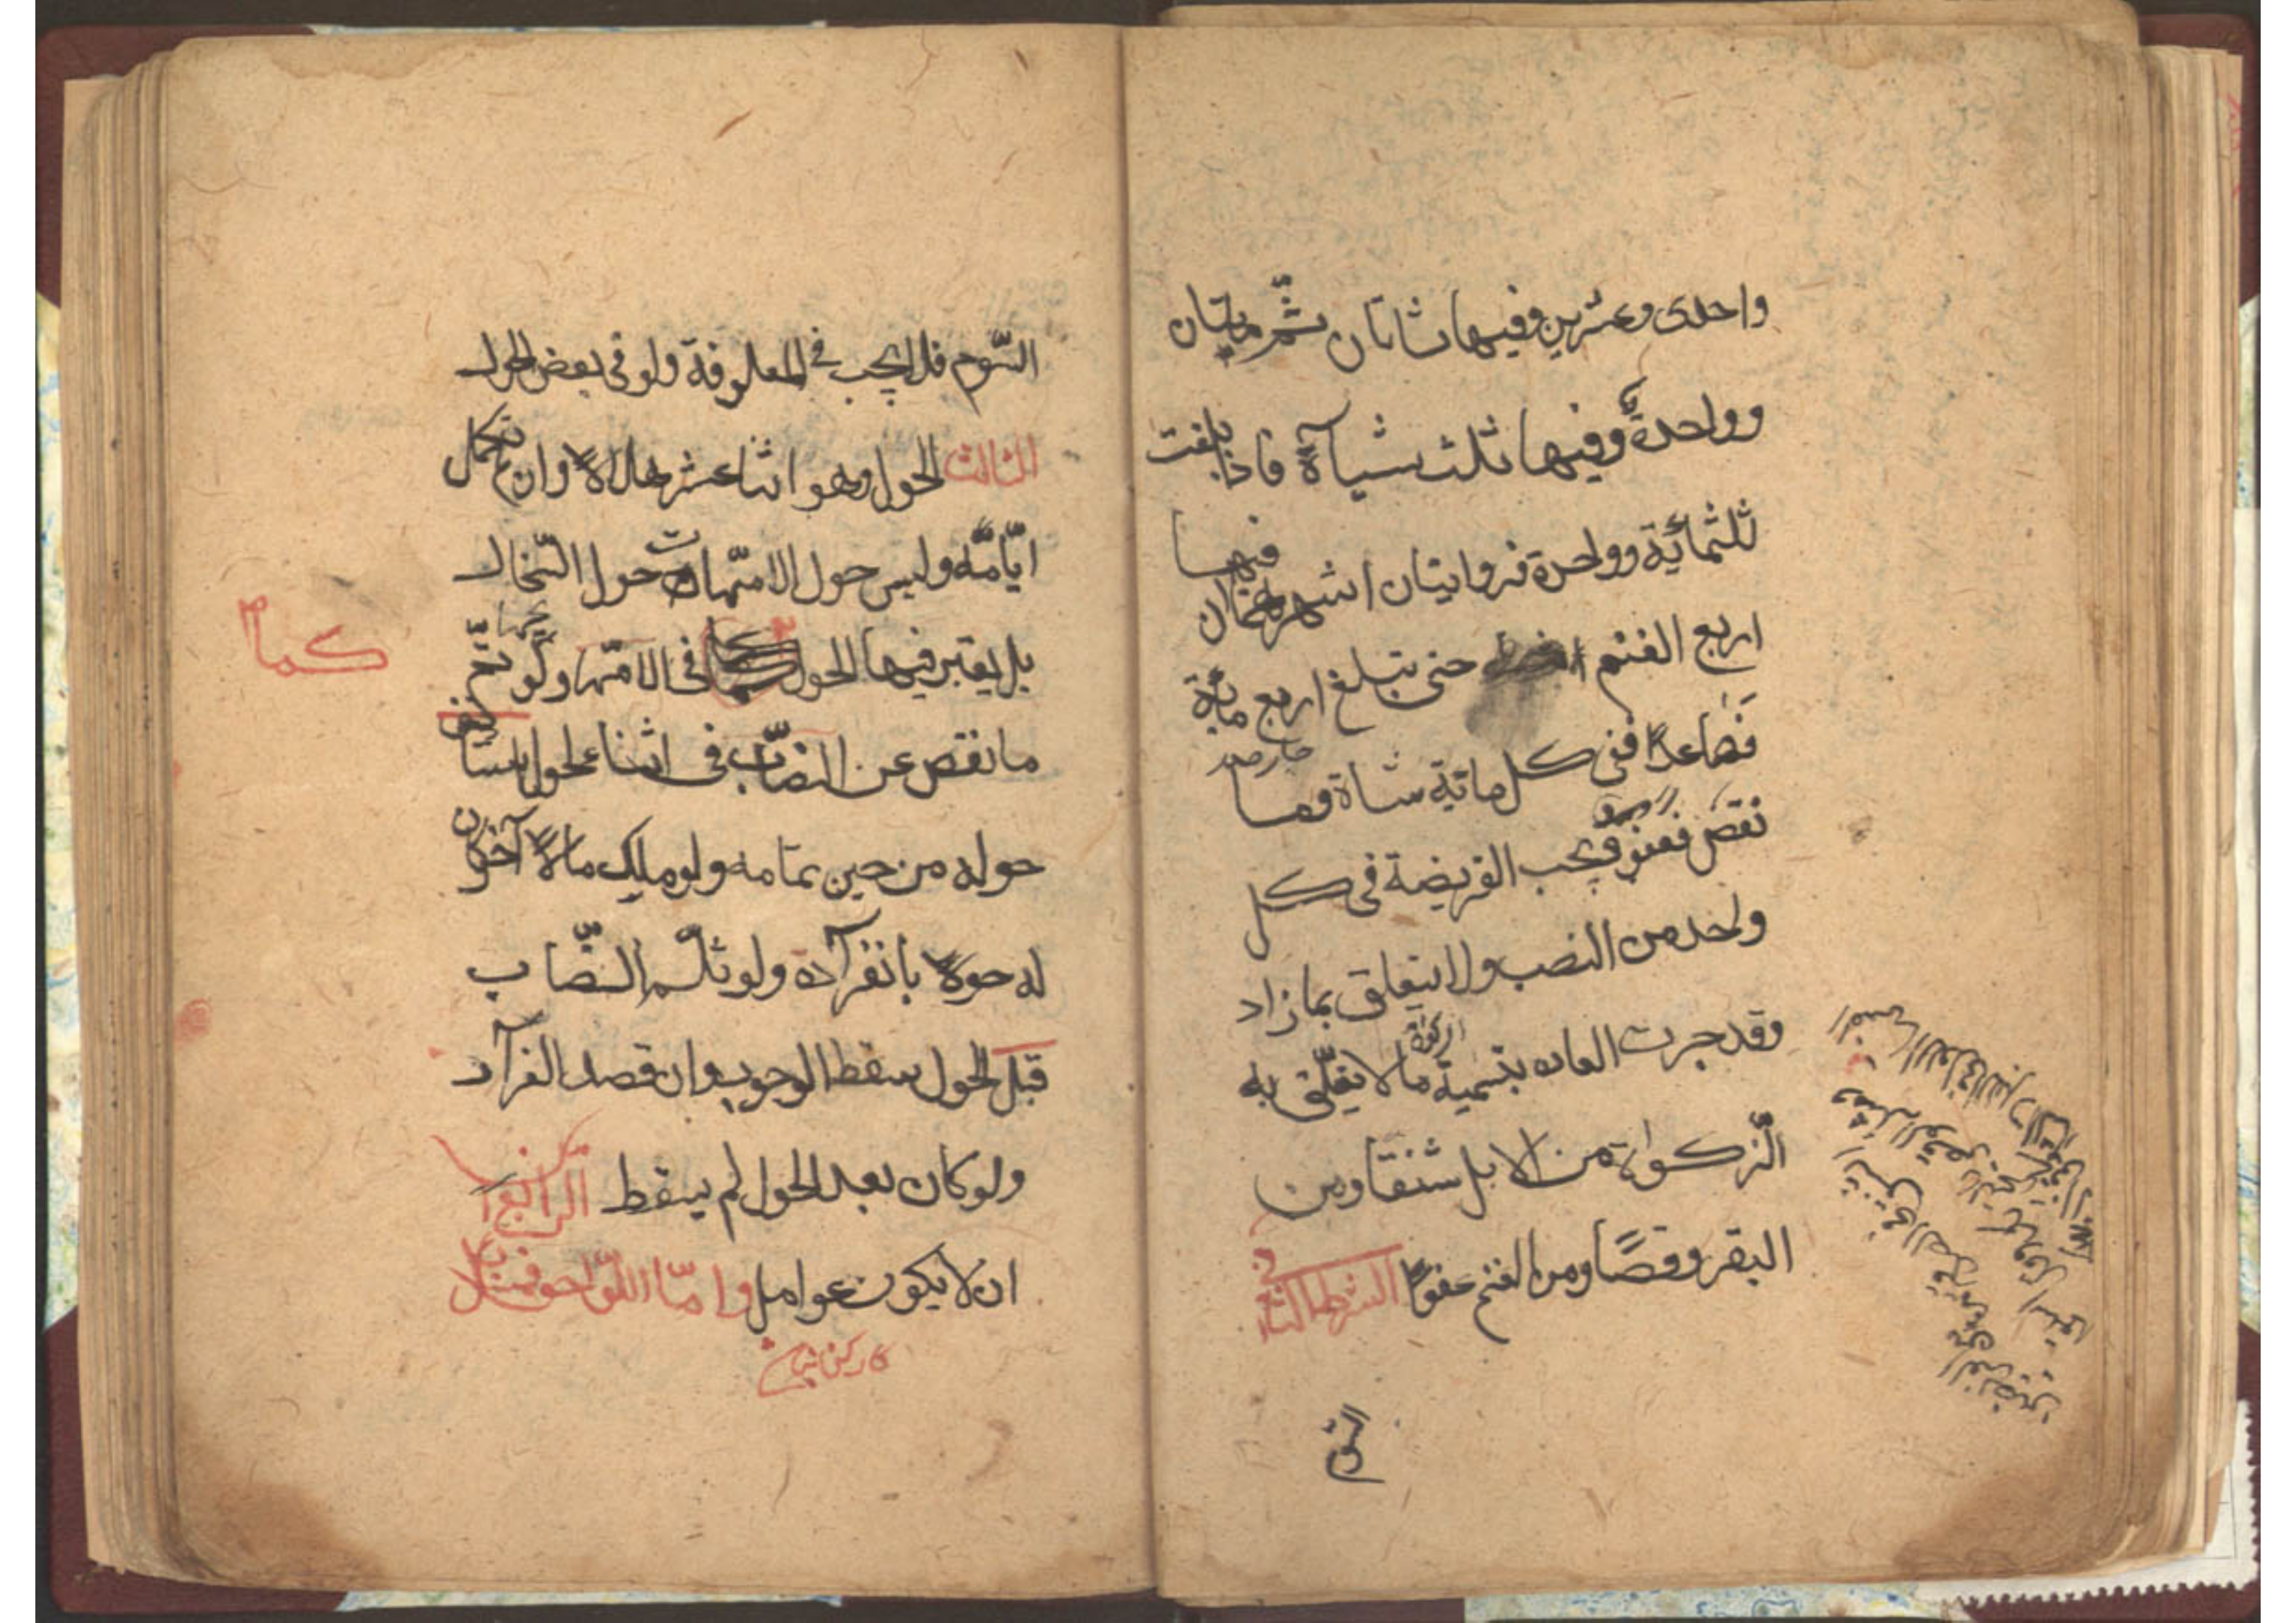 واحدى وعشرين وفيها شاتان ثمّ مايتان
وواحدة وفيها ثلث شيآة فاذا بلغت
ثلثمائة وواحدة فروايتان اشهرهما ان فيها
اربع الغنم حتى تبلغ اربع مائة
فصاعدًا ففى كل مائة شاة وما
نقص فعفو وتجب الفريضة فى كل
واحد من النصب ولا يتعلق بما زاد
وقد جرت العاده بتسمية ما لا يتعلّق به
الزكوة
الّزكوة من الابل شنقا ومن
البقر وقصًا ومن الغنم عفوًا الشرط الثانى
السوم
السّوم فلا يجب فى المعلوفة ولو فى بعض الحول
الثالث الحول وهو اثنا عشر هلالاً وان لم تكمل
ايّامه وليس حول الامّهات حول السّخال
بل يعتبر فيها الحول كما فى الامّهات ولو تمّ
كما
ما نقص عن النصاب فى اثناء الحول استأنف
حوله من حين تمامه ولو ملك مالاً آخر كان
له حولاً بانفرآده ولو ثلّم النصّاب
قبل الحول سقط الوجوب وان قصد الفرآر
ولو كان بعد الحول لم يسقط الرّابع
ان لا يكون عوامل وامّا اللّواحق فمسائل